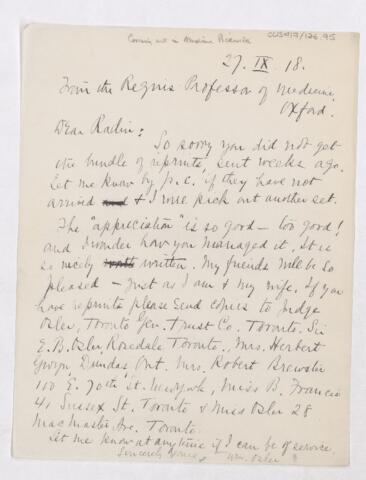 CUS417/126.95
27. IX. 18.
From the Regius Professor of Medicine,
Oxford.
Dear Radin:
So sorry you did not get
the bundle of reprints, sent weeks ago.
Let me know by p.c. if they have not
arrived & I will pick out another set.
The "appreciation" is so good – too good!
and I wonder how you managed it. It is
so nicely written. My friends will be so
pleased – just as I am & my wife. If you
have reprints please send copies to Judge
Osler, Toronto Gen. Trust Co. Toronto. Sir
E. B. Osler, Rosedale Toronto., Mrs. Herbert
Gwyn Dundas Ont. Mrs. Robert Brewster
100 E. 70th St. New York, Miss B. Francis
41 Sussex St. Toronto & Miss Osler 28
MacMaster Ave. Toronto.
Let me know at any time if I can be of service
Sincerely yours, Wm. Osler